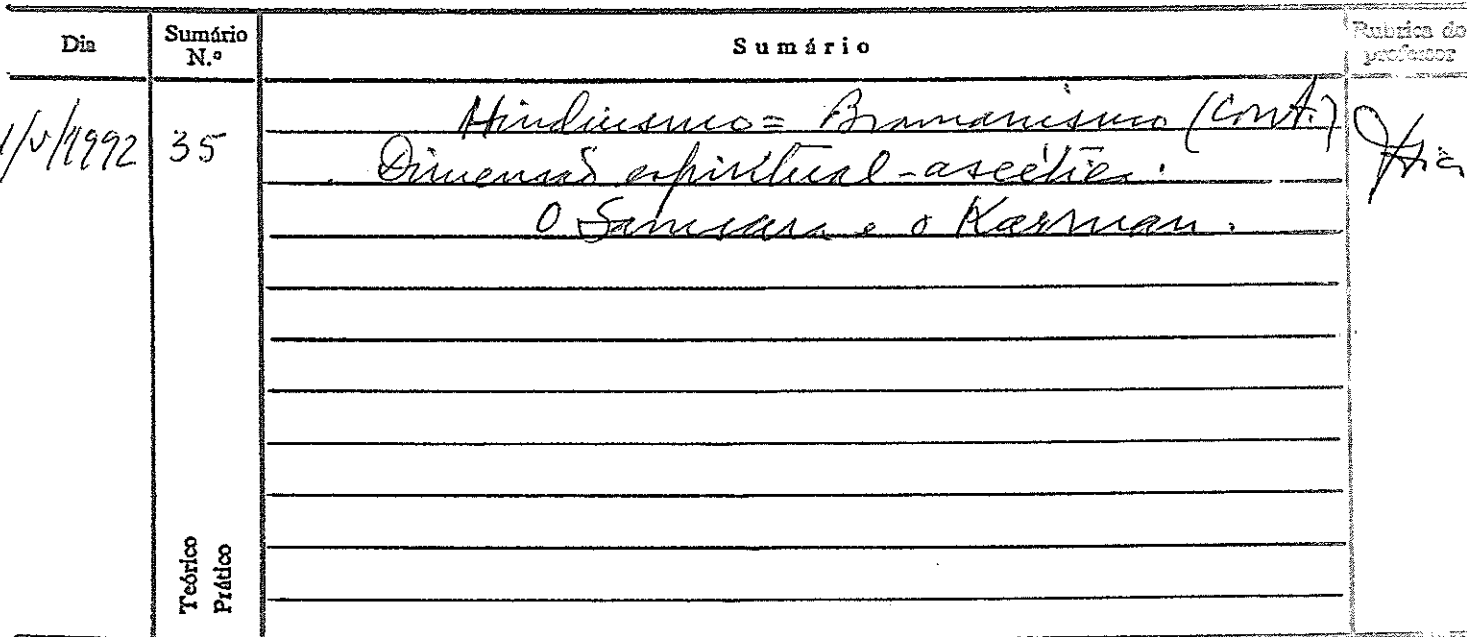 Dia
Sumário N.º
Sumário
Rubrica do professor
1/V/1992
35
Hinduismo = Bramanismo (Cont.)
. Dimensão espiritual-ascética.
O Samsara e o Karman.
Teórico
Prático